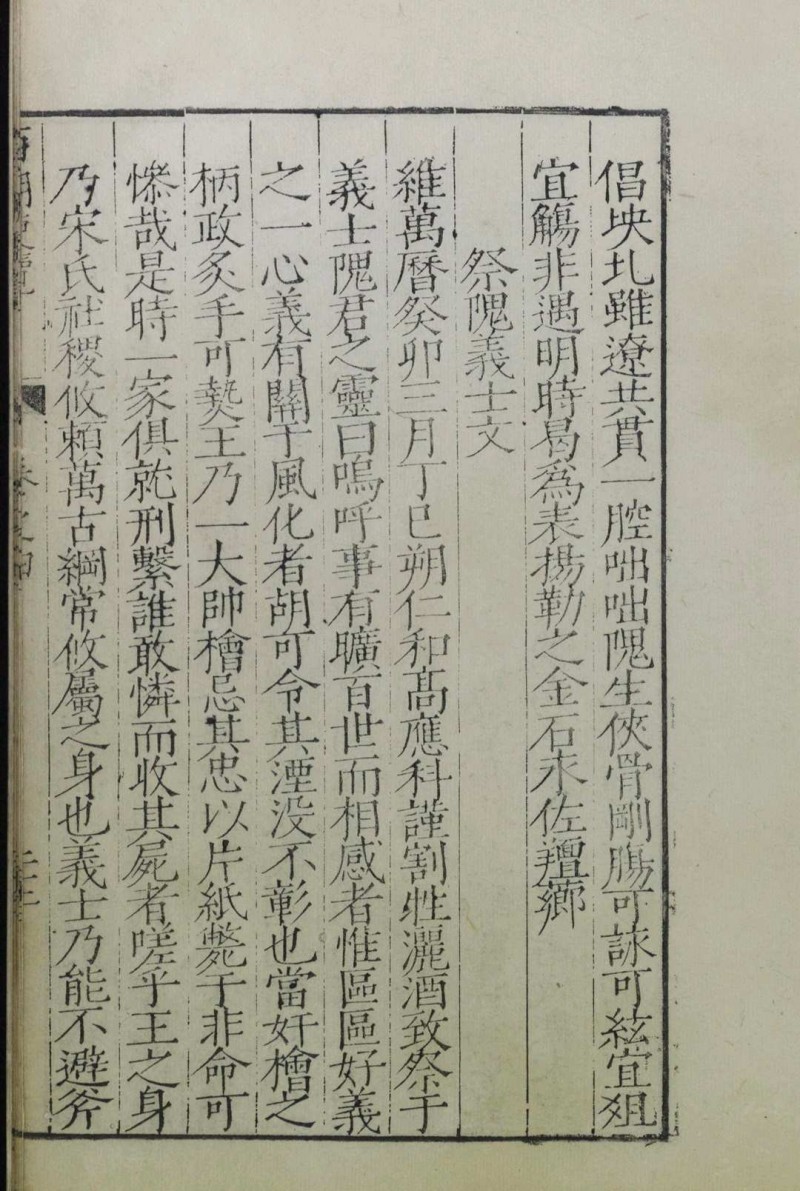 倡坱圠雖遼共貫一腔咄咄隗生俠骨剛腸可詠可絃宜俎
宜觴非遇明時曷爲表揚勒之金石永佐羶薌
祭隗義士文
維萬曆癸卯三月丁巳朔仁和高應科謹割牲灑酒致祭于
義士隗君之靈曰嗚呼事有曠百世而相感者惟區區好義
之一心義有關于風化者胡可令其湮没不彰也當奸檜之
柄政炙手可𤍠王乃一大帥檜忌其忠以片紙斃于非命可
慘哉是時一家俱就刑繫誰敢憐而收其屍者嗟乎王之身
乃宋氏社稷攸賴萬古綱常攸屬之身也義士乃能不避斧
卷之四